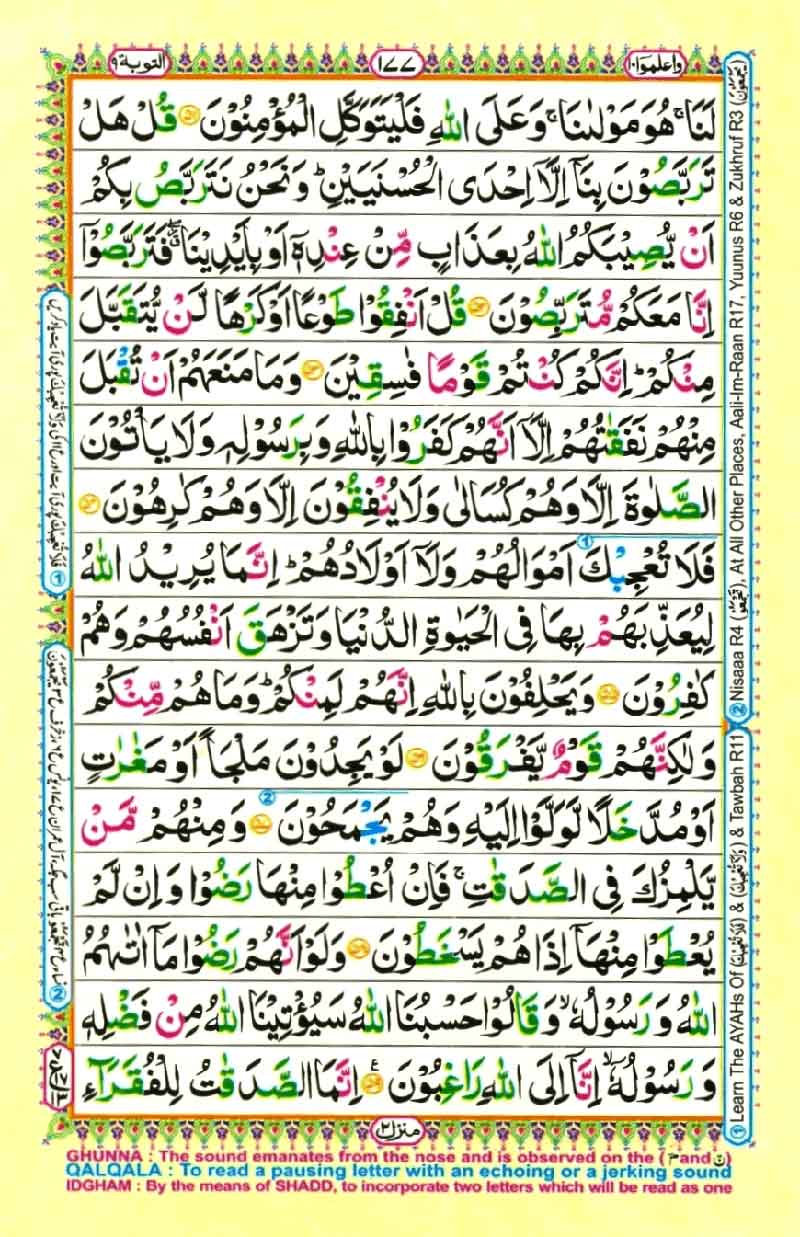 التوبة ٩
١٧٧
واعلموٓا ١٠
لَنَا ۚ هُوَ مَوْلٰىنَا ۚ وَعَلَى اللّٰهِ فَلْيَتَوَكَّلِ الْمُؤْمِنُوْنَ ۝ قُلْ هَلْ
تَرَبَّصُوْنَ بِنَاۤ اِلَّاۤ اِحْدَى الْحُسْنَيَيْنِ ؕ وَنَحْنُ نَتَرَبَّصُ بِكُمْ
اَنْ يُّصِيْبَكُمُ اللّٰهُ بِعَذَابٍ مِّنْ عِنْدِهٖۤ اَوْ بِاَيْدِيْنَا ۖ فَتَرَبَّصُوْۤا
اِنَّا مَعَكُمْ مُّتَرَبِّصُوْنَ ۝ قُلْ اَنْفِقُوْا طَوْعًا اَوْ كَرْهًا لَّنْ يُّتَقَبَّلَ
مِنْكُمْ ؕ اِنَّكُمْ كُنْتُمْ قَوْمًا فٰسِقِيْنَ ۝ وَمَا مَنَعَهُمْ اَنْ تُقْبَلَ
مِنْهُمْ نَفَقٰتُهُمْ اِلَّاۤ اَنَّهُمْ كَفَرُوْا بِاللّٰهِ وَبِرَسُوْلِهٖ وَلَا يَاْتُوْنَ
الصَّلٰوةَ اِلَّا وَهُمْ كُسَالٰى وَلَا يُنْفِقُوْنَ اِلَّا وَهُمْ كٰرِهُوْنَ ۝
فَلَا تُعْجِبْكَ اَمْوَالُهُمْ وَلَاۤ اَوْلَادُهُمْ ؕ اِنَّمَا يُرِيْدُ اللّٰهُ
لِيُعَذِّبَهُمْ بِهَا فِى الْحَيٰوةِ الدُّنْيَا وَتَزْهَقَ اَنْفُسُهُمْ وَهُمْ
كٰفِرُوْنَ ۝ وَيَحْلِفُوْنَ بِاللّٰهِ اِنَّهُمْ لَمِنْكُمْ ؕ وَمَا هُمْ مِّنْكُمْ
وَلٰكِنَّهُمْ قَوْمٌ يَّفْرَقُوْنَ ۝ لَوْ يَجِدُوْنَ مَلْجَاً اَوْ مَغٰرٰتٍ
اَوْ مُدَّخَلًا لَّوَلَّوْا اِلَيْهِ وَهُمْ يَجْمَحُوْنَ ۝ وَمِنْهُمْ مَّنْ
يَّلْمِزُكَ فِى الصَّدَقٰتِ ۚ فَاِنْ اُعْطُوْا مِنْهَا رَضُوْا وَاِنْ لَّمْ
يُعْطَوْا مِنْهَاۤ اِذَا هُمْ يَسْخَطُوْنَ ۝ وَلَوْ اَنَّهُمْ رَضُوْا مَاۤ اٰتٰىهُمُ
اللّٰهُ وَرَسُوْلُهٗ ۙ وَقَالُوْا حَسْبُنَا اللّٰهُ سَيُؤْتِيْنَا اللّٰهُ مِنْ فَضْلِهٖ
وَرَسُوْلُهٗۤ ۙ اِنَّاۤ اِلَى اللّٰهِ رَاغِبُوْنَ ۝ اِنَّمَا الصَّدَقٰتُ لِلْفُقَرَآءِ
منزل ٢
② Nisaaa R4 (), At All Other Places, Aali-Im-Raan R17, Yuunus R6 & Zukhruf R3 ()
① Learn The AYAHs Of () & () & Tawbah R11
GHUNNA : The sound emanates from the nose and is observed on the (م and ن)
QALQALA : To read a pausing letter with an echoing or a jerking sound
IDGHAM : By the means of SHADD, to incorporate two letters which will be read as one